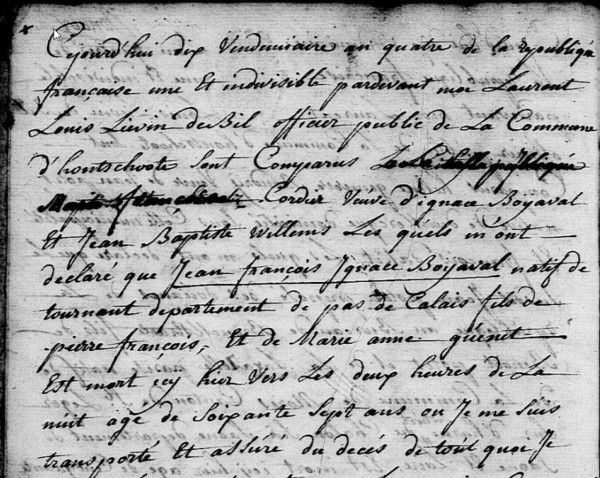 Cejourd'hui dix Vendemiaire an quatre de la republique
française une Et indivisible pardevant moi Laurent
Louis Liévin deBil officier public de La Commune
d'hontschoote sont Comparus
Cordier Veuve d'ignace Boyaval
Et Jean Baptiste Willems Les quels m'ont
declaré que Jean françois Ignace Boyaval natif de
tournant departement de pas de Calais fils de
pierre françois, Et de Marie anne quénet
Est mort icy hier Vers Les deux heures de La
nuit agé de Soixante Sept ans ou Je me suis
transporté et assuré du decés de tout quoi Je